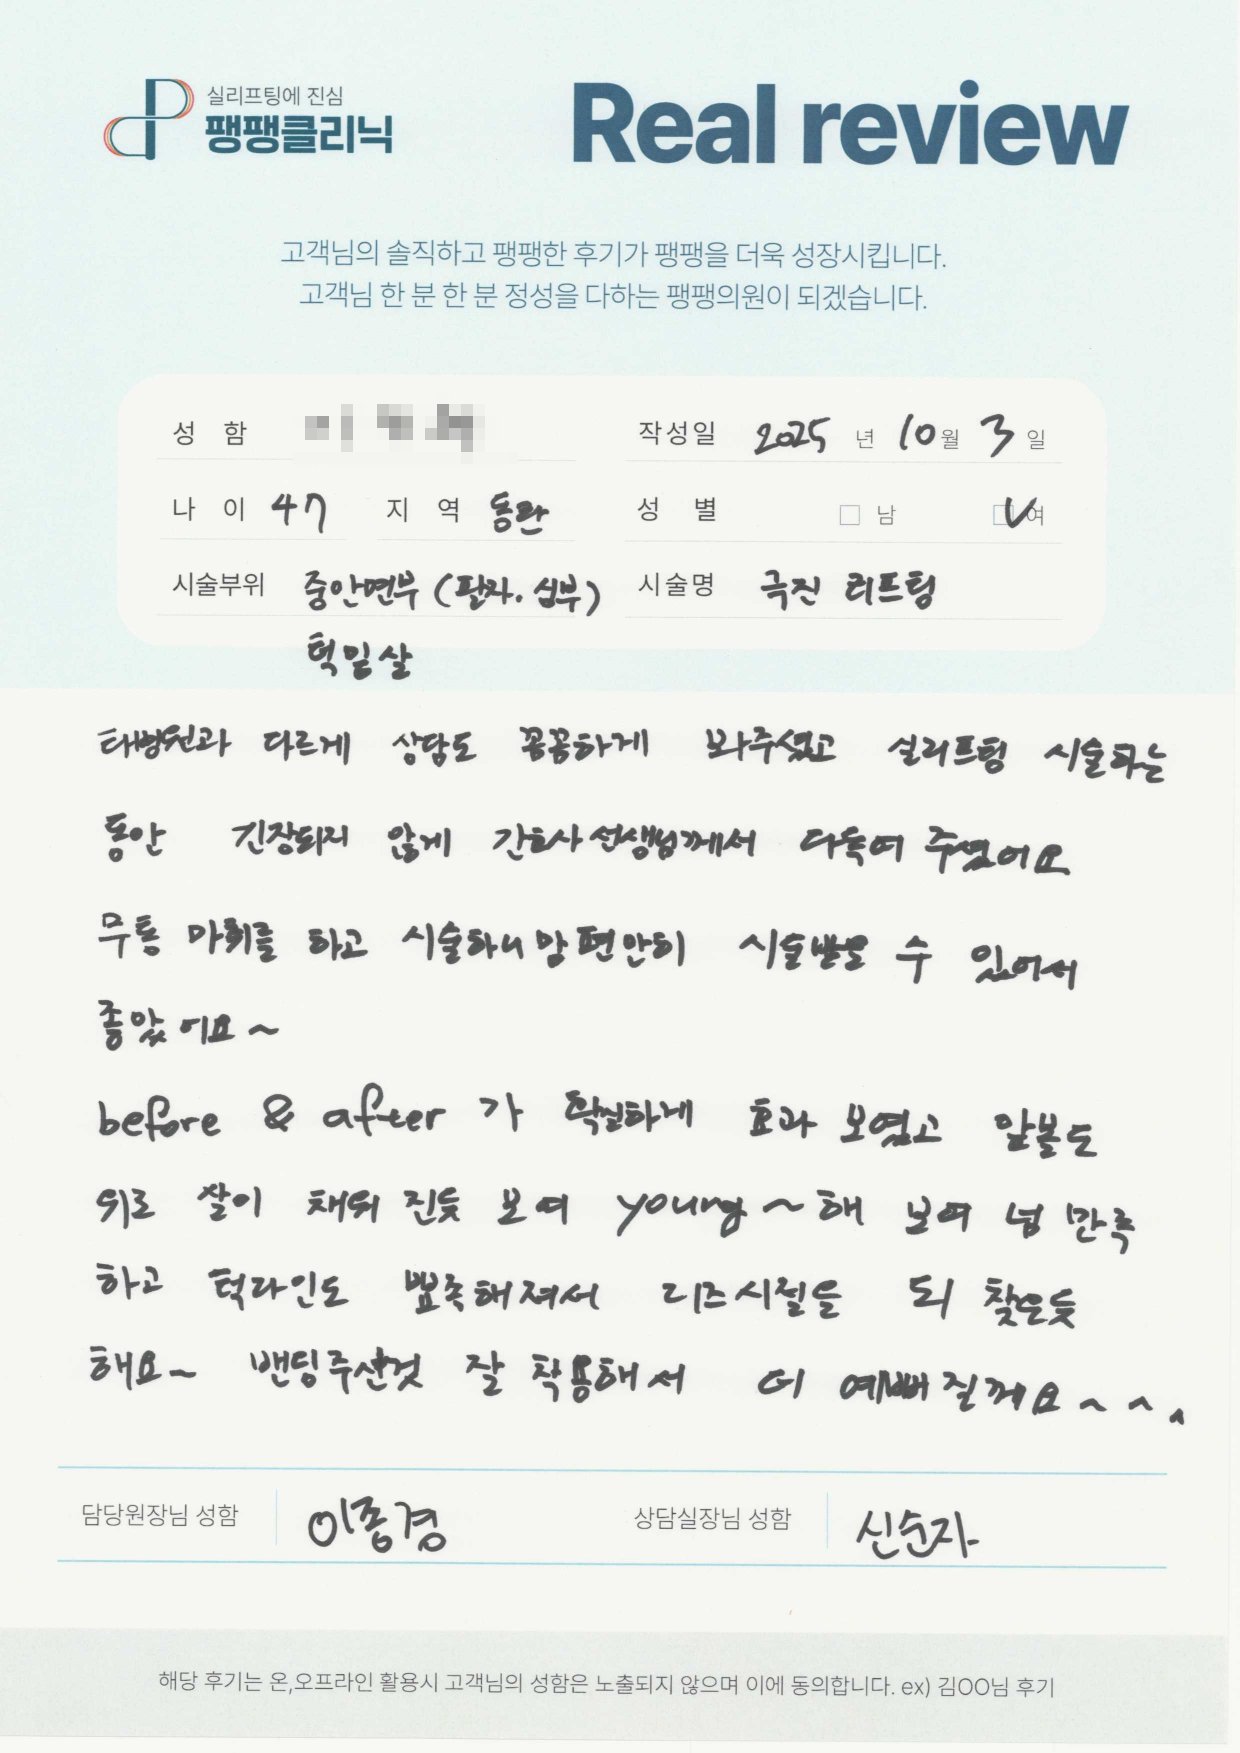 실리프팅에 진심
팽팽클리닉
Real review
고객님의 솔직하고 팽팽한 후기가 팽팽을 더욱 성장시킵니다.
고객님 한 분 한 분 정성을 다하는 팽팽의원이 되겠습니다.
성 함 작성일 2025 년 10 월 3 일
나 이 47 지 역 동탄 성 별 남 여
시술부위 중안면부 (팔자. 심부) 시술명 극진 리프팅
턱밑살
타병원과 다르게 상담도 꼼꼼하게 봐주셨고 실리프팅 시술하는
동안 긴장되지 않게 간호사 선생님께서 다독여 주셨어요
무통 마취를 하고 시술하니 맘 편안히 시술받을 수 있어서
좋았어요~
before & after 가 확실하게 효과 보였고 앞볼도
위로 살이 채워 진듯 보여 young~해 보여 넘 만족
하고 턱라인도 뾰족해져서 리즈시절을 되 찾은듯
해요~ 밴딩주신것 잘 착용해서 더 예뻐질께요~^^
담당원장님 성함 이종경 상담실장님 성함 신순자
해당 후기는 온,오프라인 활용시 고객님의 성함은 노출되지 않으며 이에 동의합니다. ex) 김OO님 후기